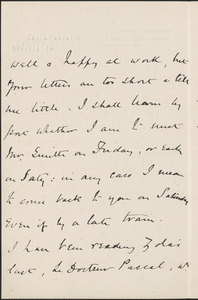 well & happy at work, but
your letters are too short & tell
me little. I shall learn by
post whether I am to meet
Mr. Smith on Friday, or early
on Saty: in any case I mean
to come back to you on Saturday
Even if by a late train.
I have been reading Zola's
last, Le Docteur Pascal, wh